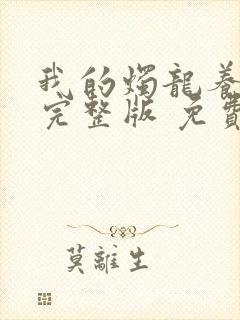 我的燭龍養
完整版 免費
莫離生